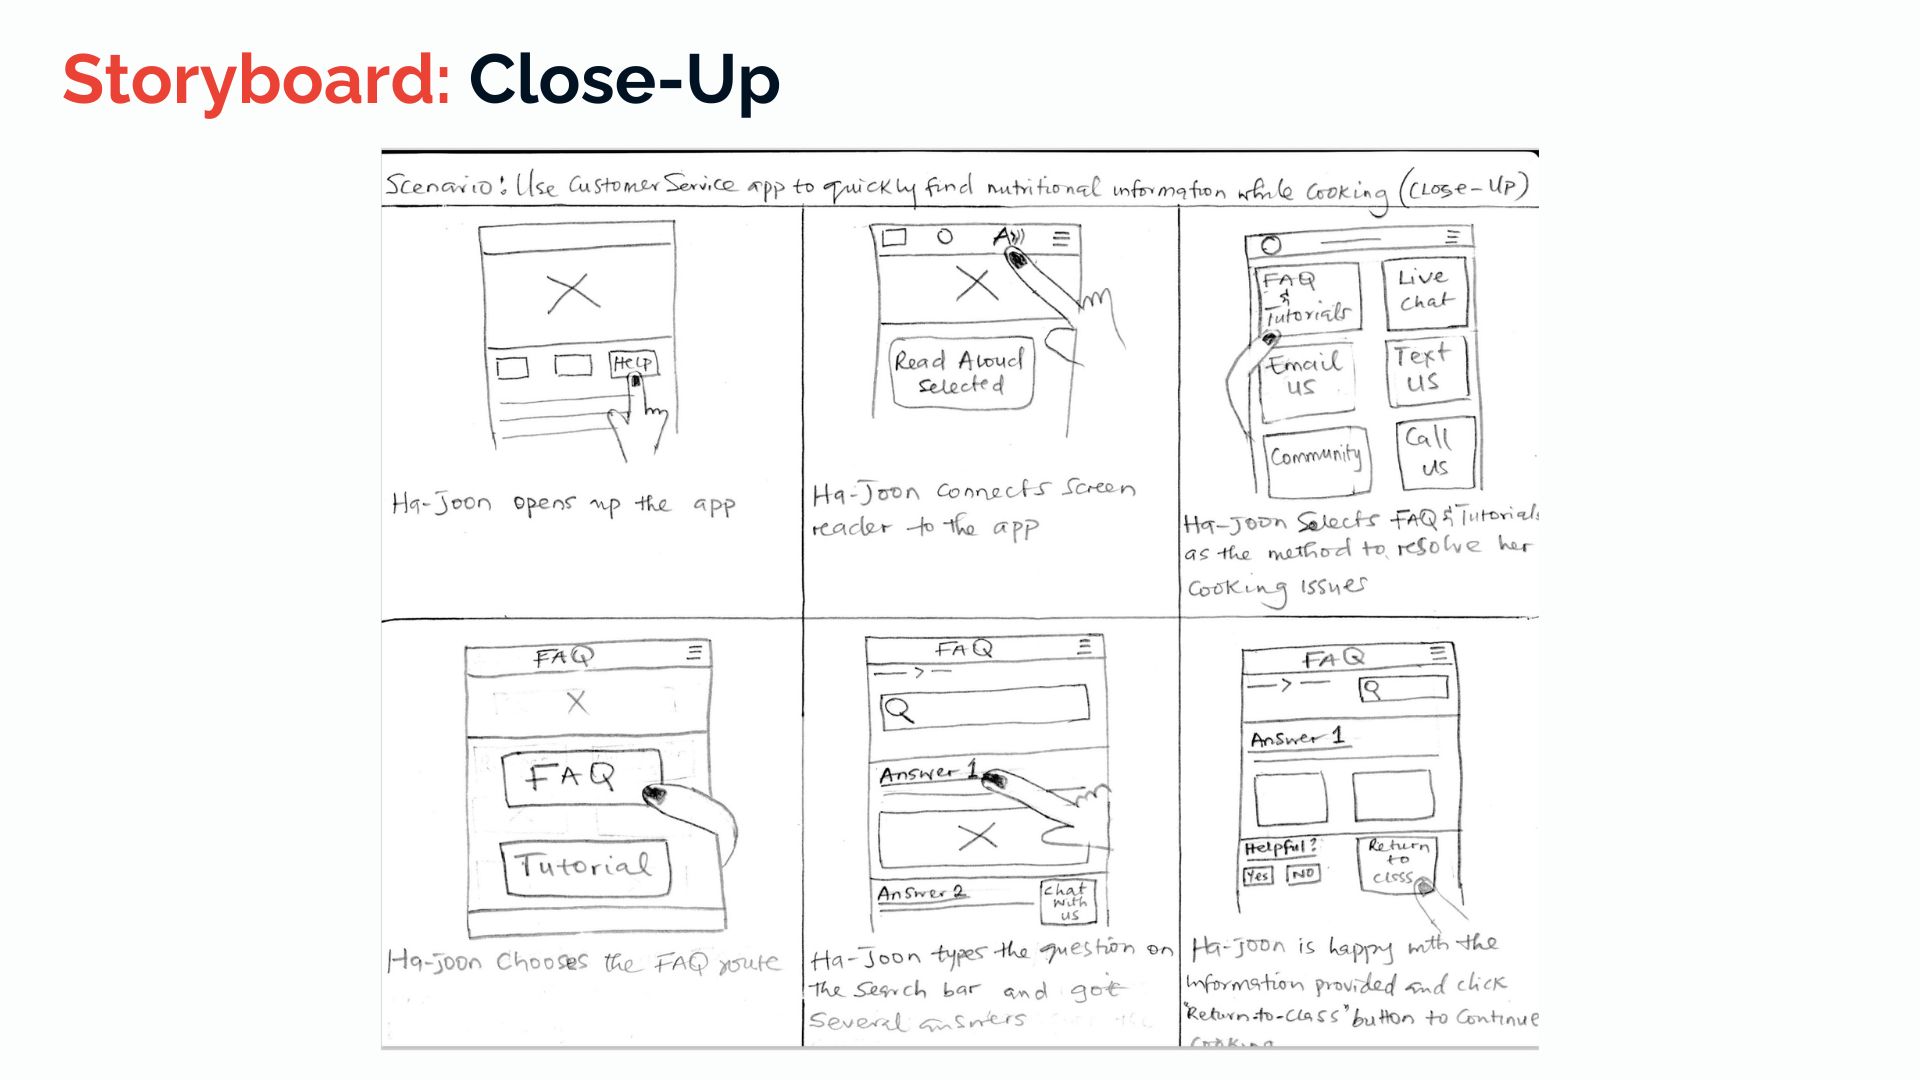 Storyboard: Close-Up
Scenario: Use Customer Service app to quickly find nutritional information while cooking (Close-Up)
Help
Ha-Joon opens up the app
A
Read Aloud
Selected
Ha-Joon connects screen
reader to the app
FAQ
&
Tutorials
Live
Chat
Email
us
Text
us
Community
Call
us
Ha-Joon Selects FAQ & Tutorials
as the method to resolve her
Cooking issues
FAQ
FAQ
Tutorial
Ha-Joon Chooses the FAQ route
FAQ
>
Answer 1
Answer 2
Chat
with
us
Ha-Joon types the question on
the search bar and got
Several answers
FAQ
>
Answer 1
Helpful?
Yes
NO
Return
to
Class
Ha-Joon is happy with the
information provided and click
"Return-to-Class" button to Continue
Cooking